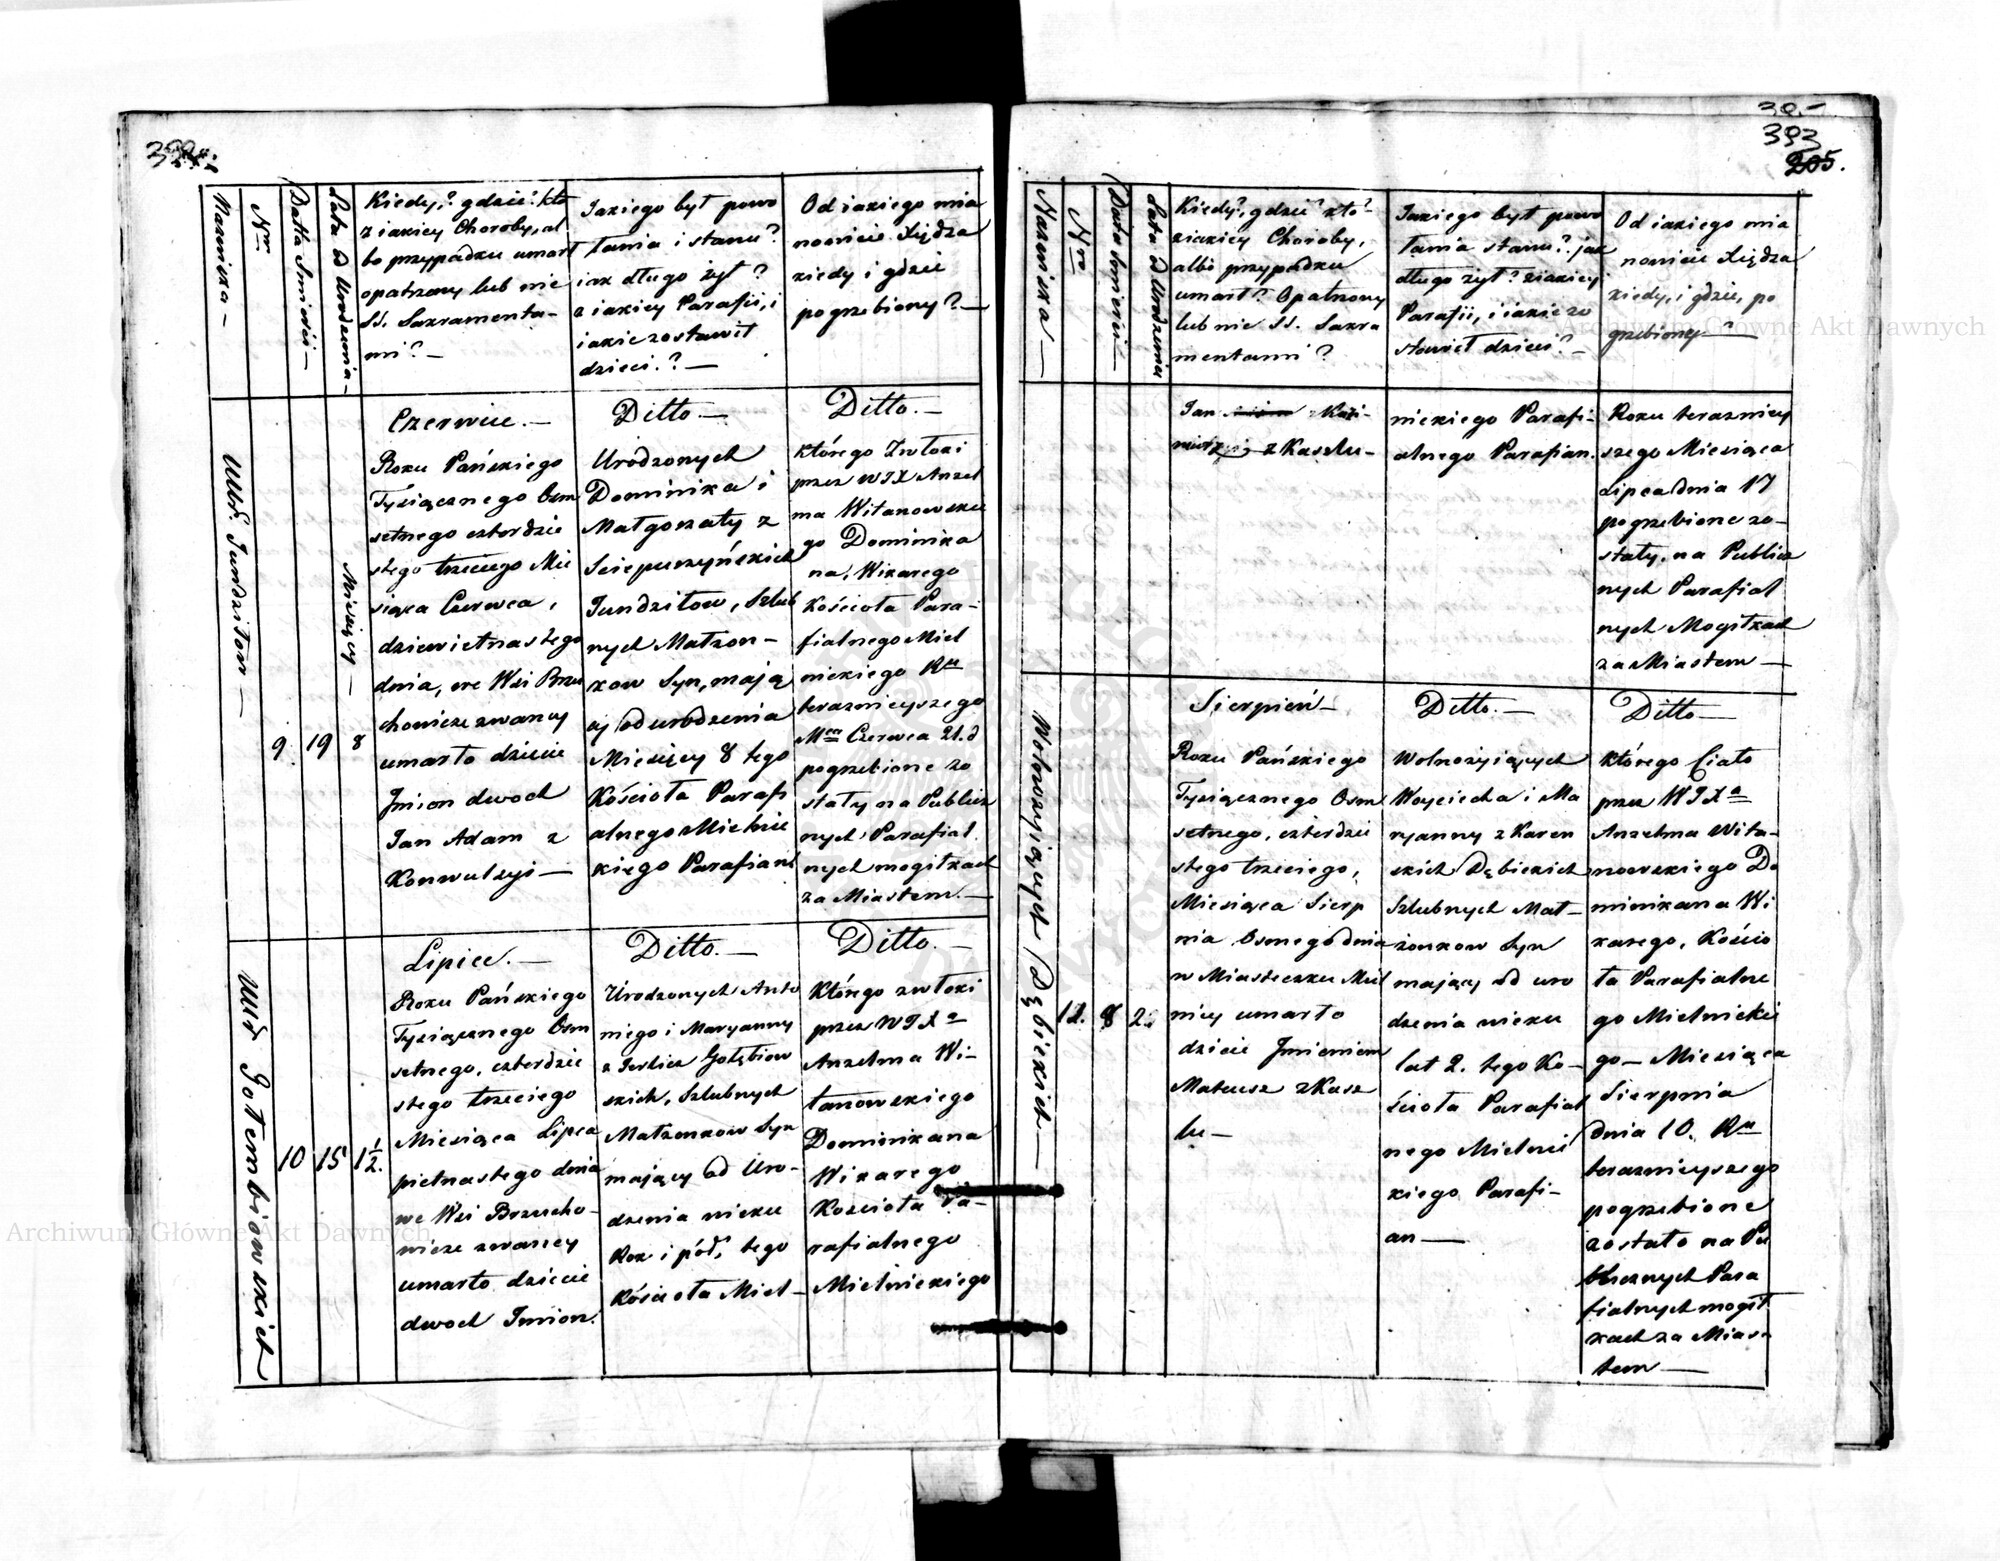 393
205.
Nazwiska —
Nrm
Datta Śmierci —
Lata od Urodzenia —
Kiedy,? gdzie? kto
z iakiey Choroby, al
bo przypadku umarł
opatrzony lub nie
SS. Sakramenta-
mi? —
Iakiego był powo
łania i stanu?
iak długo żył?
z iakiey Parafii, i
iakie zostawił
dzieci.? —
Od iakiego mia
nowicie Xiędza
kiedy i gdzie
pogrzebiony? —
Ur. Jundziłłow —
9.
19
8
Miesięcy —
Czerwiec. —
Roku Pańskiego
Tysiącznego Osm
setnego czterdzie
stego trzeciego Mie
siąca Czerwca,
dziewietnastego
dnia, we Wsi Brzu
chowicze zwaney
umarło dziecie
Jmion dwoch
Jan Adam z
Konwulsyi —
Ditto. —
Urodzonych
Dominika i
Małgorzaty z
Sciepurzyńskich
Jundziłow, Szlub
nych Małżon-
kow Syn, mają
cy od urodzenia
Miesięcy 8 tego
Kościoła Parafi
alnego Mielnic
kiego Parafiani
Ditto. —
którego Zwłoki
przez WJX Anzel
ma Witanowskie
go Dominika
na, Wikarego
Kościoła Para-
fialnego Miel
nickiego Ru
terazniejszego
Mca Czerwca 21. d
pogrzebione zo
stały na Publicz
nych Parafial
nych mogiłkach
za Miastem. —
Ur Gołembiowskich
10
15
1 1/2.
Lipiec. —
Roku Pańskiego
Tysiącznego Osm
setnego, czterdzie
stego trzeciego
Miesiąca Lipca
pietnastego dnia
we Wsi Brzucho-
wicze zwaney
umarło dziecie
dwoch Jmion.
Ditto. —
Urodzonych Anto
niego i Maryanny
z Gołębiow
skich, Szlubnych
Małżonkow Syn
mający od Uro-
dzenia wieku
Rok i poł, tego
Kościoła Miel-
Ditto. —
Którego zwłoki
przez WJXa
Anzelma Wi-
tanowskiego
Dominikana
Wikarego
Kościoła Pa-
rafialnego
Mielnickiego
Nazwiska —
Nro
Data Śmierci —
Lata od Urodzenia
Kiedy?, gdzie? kto?-
ziakiey Choroby,
albo przypadku
umarł? Opatrzony
lub nie SS. Sakra
mentami?
Iakiego był powo
łania stanu? jak
długo żył? ziakiey
Parafii, i iakie zo
stawił dzieci? —
Od iakiego mia
nowicie Xiędza
kiedy, i gdzie, po
grzebiony — ?
Jan Kazi-
mierz z Kaszlu-
nickiego Parafi-
alnego Parafian.
Roku terazniey
szego Miesiąca
Lipca dnia 17
pogrzebione zo-
stały, na Publicz
nych Parafial
nych Mogiłkach
za Miastem —
Wolnożyiących Dębickich —
12.
8
2.
Sierpień —
Roku Pańskiego
Tysiącznego Osm
setnego, czterdzie
stego trzeciego,
Miesiąca Sierp
nia Osmego dnia
w Miasteczku Miel
nicy umarło
dziecie Jmieniem
Mateusz z Kasz
lu —
Ditto. —
Wolnożyiących
Woyciecha i Ma
ryanny z Karen
skich Dębickich
Szlubnych Mał-
żonkow Syn
mający od uro
dzenia wieku
lat 2. tego Ko-
ścioła Parafial
nego Mielnic
kiego Parafi-
an —
Ditto —
którego Ciało
przez WJXa
Anzelma Wita-
nowskiego Do
minikana Wi
karego, Koscio
ła Parafialne
go Mielnickie
go — Miesiąca
Sierpnia
dnia 10. Ru
terazniejszego
pogrzebione
zostało na Pu
blicznych Para
fialnych mogił
kach za Mias-
tem —
Archiwum Główne Akt Dawnych
Archiwum Główne Akt Dawnych